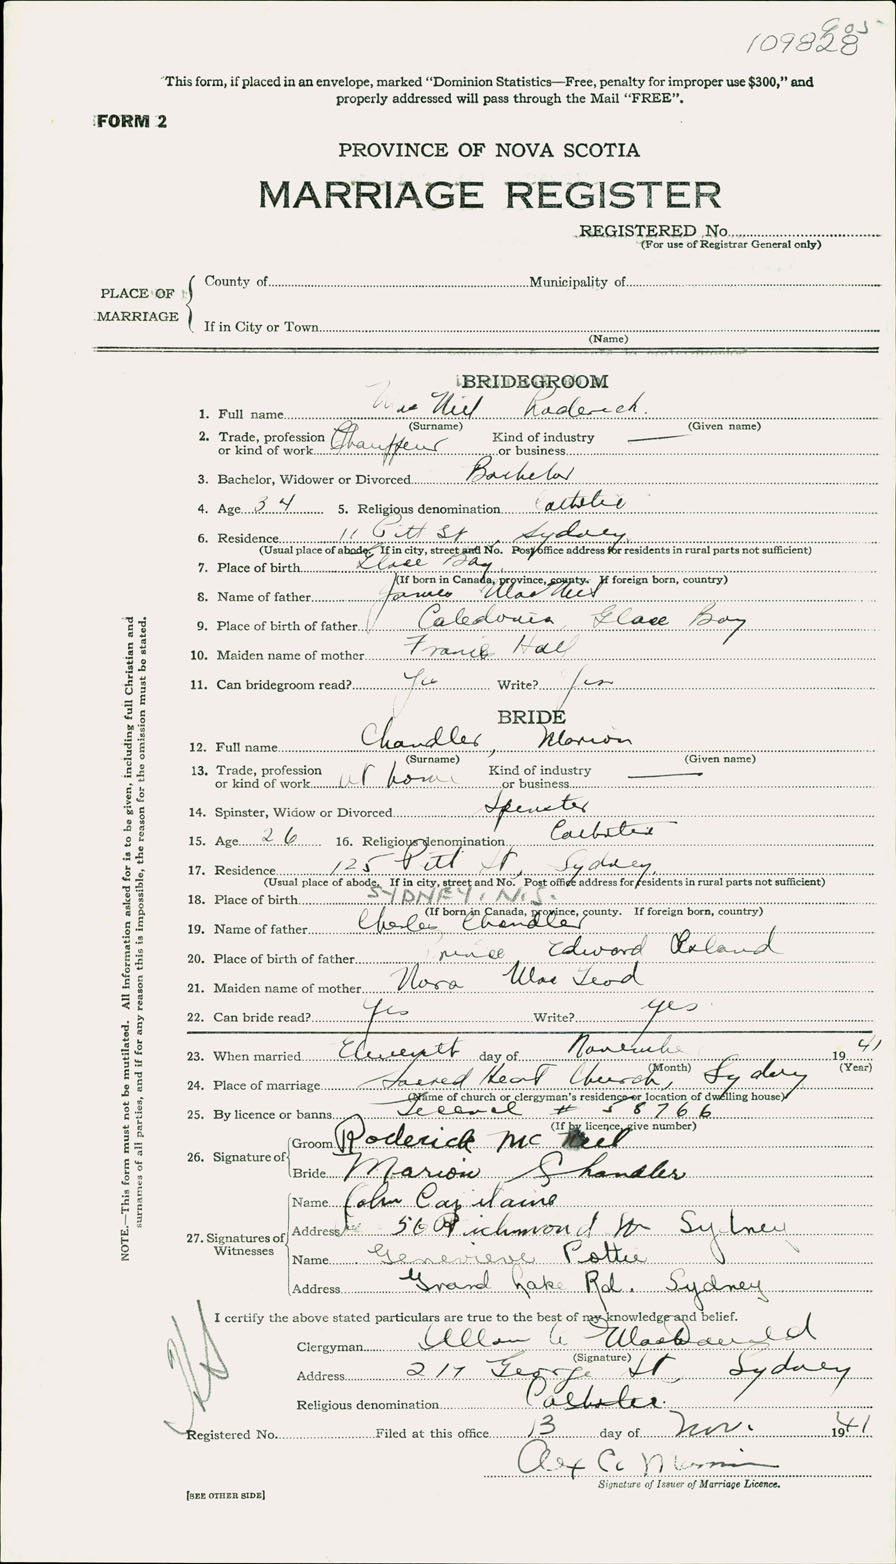 109828
"This form, if placed in an envelope, marked "Dominion Statistics—Free, penalty for improper use $300," and
properly addressed will pass through the Mail "FREE".
FORM 2
PROVINCE OF NOVA SCOTIA
MARRIAGE REGISTER
REGISTERED No.
(For use of Registrar General only)
PLACE OF MARRIAGE
County of Municipality of
If in City or Town
(Name)
BRIDEGROOM
1. Full name Mac Niel Roderick.
(Surname) (Given name)
2. Trade, profession or kind of work Chauffeur Kind of industry or business —
3. Bachelor, Widower or Divorced Bachelor
4. Age 34 5. Religious denomination Catholic
6. Residence 11 Pitt St, Sydney
(Usual place of abode. If in city, street and No. Post office address for residents in rural parts not sufficient)
7. Place of birth Glace Bay
(If born in Canada, province, county. If foreign born, country)
8. Name of father James MacNeil
9. Place of birth of father Caledonia, Glace Bay
10. Maiden name of mother Hall
11. Can bridegroom read? Yes Write? Yes
BRIDE
12. Full name Chandler, Marion
(Surname) (Given name)
13. Trade, profession or kind of work at home Kind of industry or business —
14. Spinster, Widow or Divorced Spinster
15. Age 26 16. Religious denomination Catholic
17. Residence 125 Pitt St, Sydney
(Usual place of abode. If in city, street and No. Post office address for residents in rural parts not sufficient)
18. Place of birth SYDNEY, N.S.
(If born in Canada, province, county. If foreign born, country)
19. Name of father Charles Chandler
20. Place of birth of father Prince Edward Island
21. Maiden name of mother Nora Mac Leod
22. Can bride read? Yes Write? yes
23. When married Eleventh day of November 1941
(Month) (Year)
24. Place of marriage Sacred Heart Church, Sydney
(Name of church or clergyman's residence or location of dwelling house)
25. By licence or banns # 58766
(If by licence, give number)
26. Signature of
Groom Roderick Mc Neil
Bride Marion Chandler
27. Signatures of Witnesses
Name John Capitaine
Address 56 Richmond St Sydney
Name Genevieve Pottie
Address Grand Lake Rd. Sydney
I certify the above stated particulars are true to the best of my knowledge and belief.
Clergyman Allan A MacDonald
(Signature)
Address 217 George St, Sydney
Religious denomination Catholic
Registered No. Filed at this office 13 day of Nov. 1941
Alex C.
Signature of Issuer of Marriage Licence.
[SEE OTHER SIDE]
NOTE.—This form must not be mutilated. All information asked for is to be given, including full Christian and
surnames of all parties, and if for any reason this is impossible, the reason for the omission must be stated.